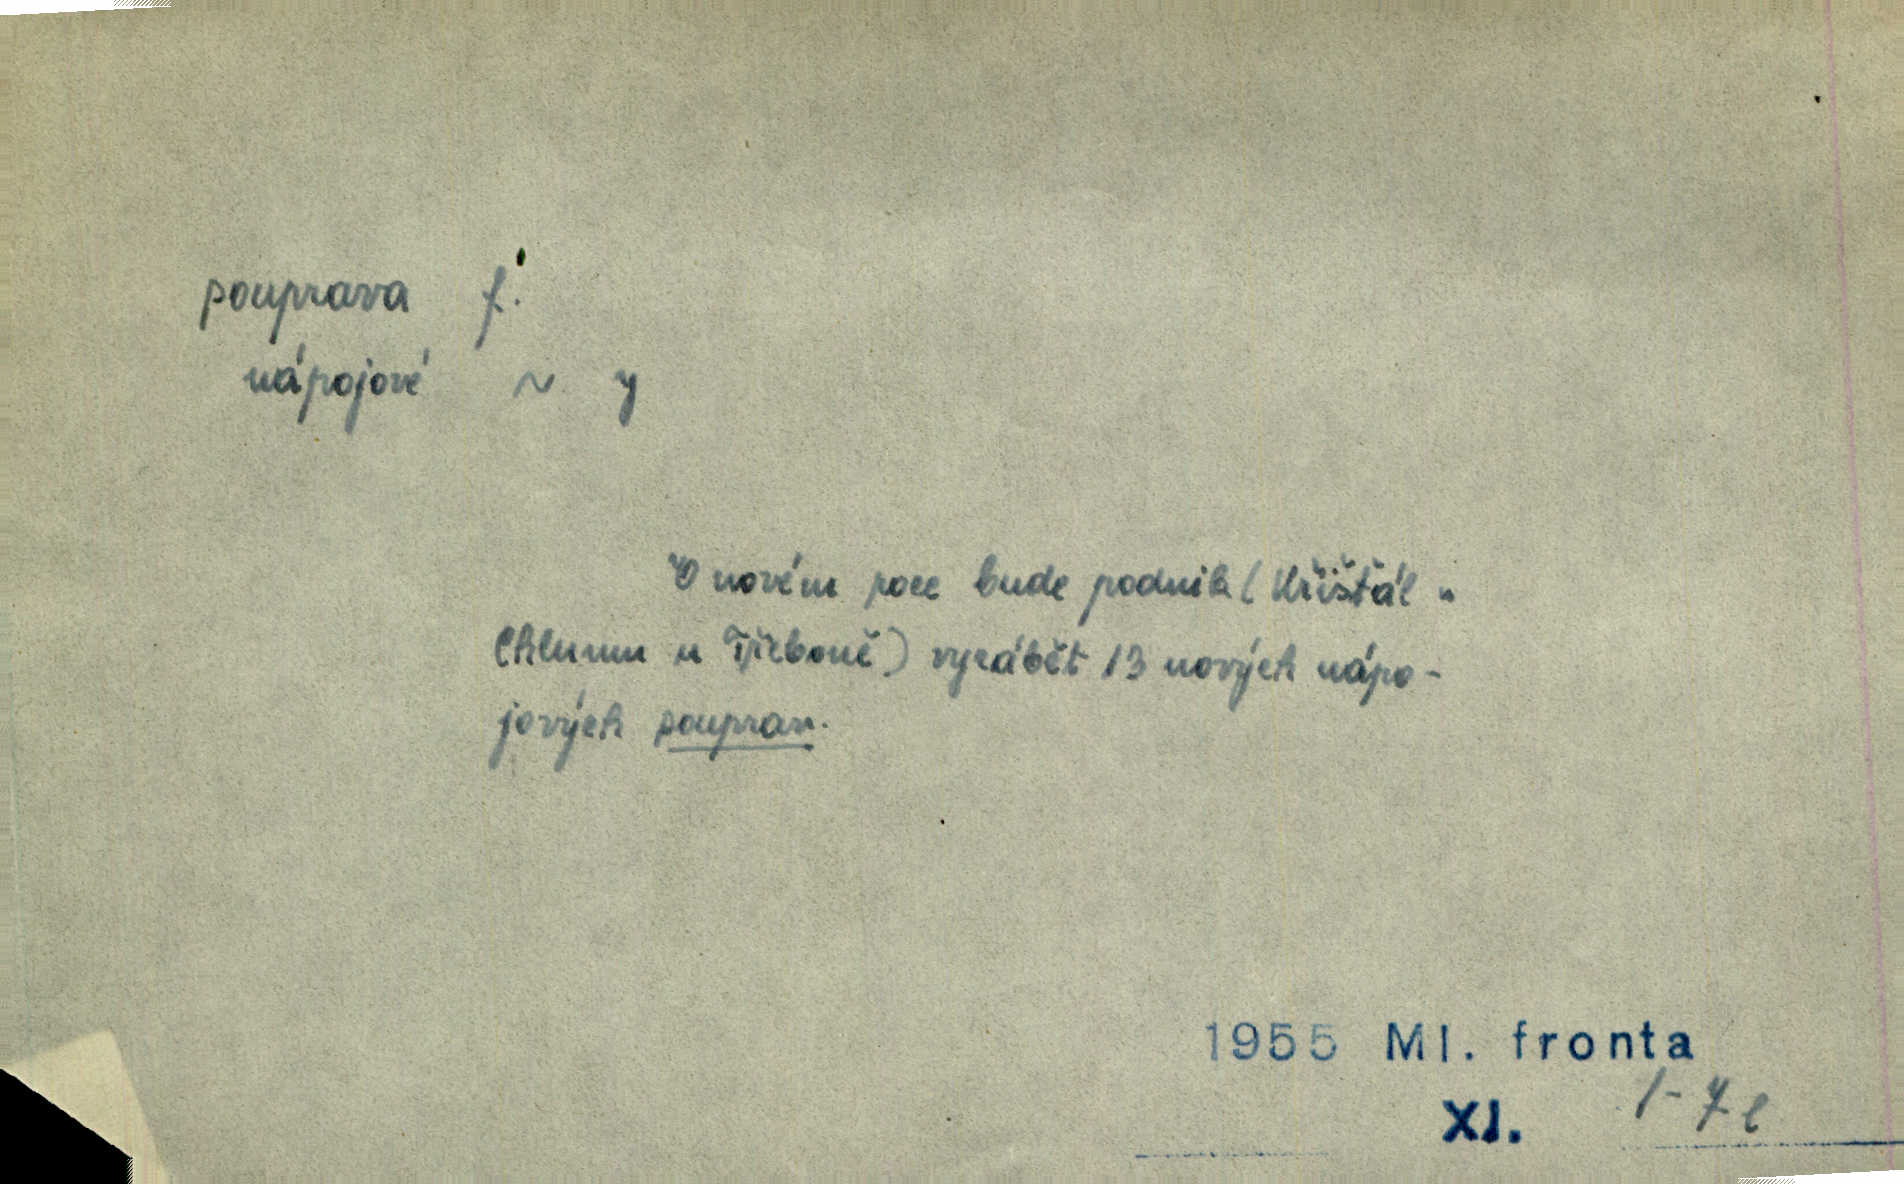 pouprava f.
nápojové ~ y
V novém roce bude podnik (Křišťál v
Chlumu u Třeboně) vyrábět 13 nových nápo-
jových souprav.
1955 Ml. fronta
XI. 1-7